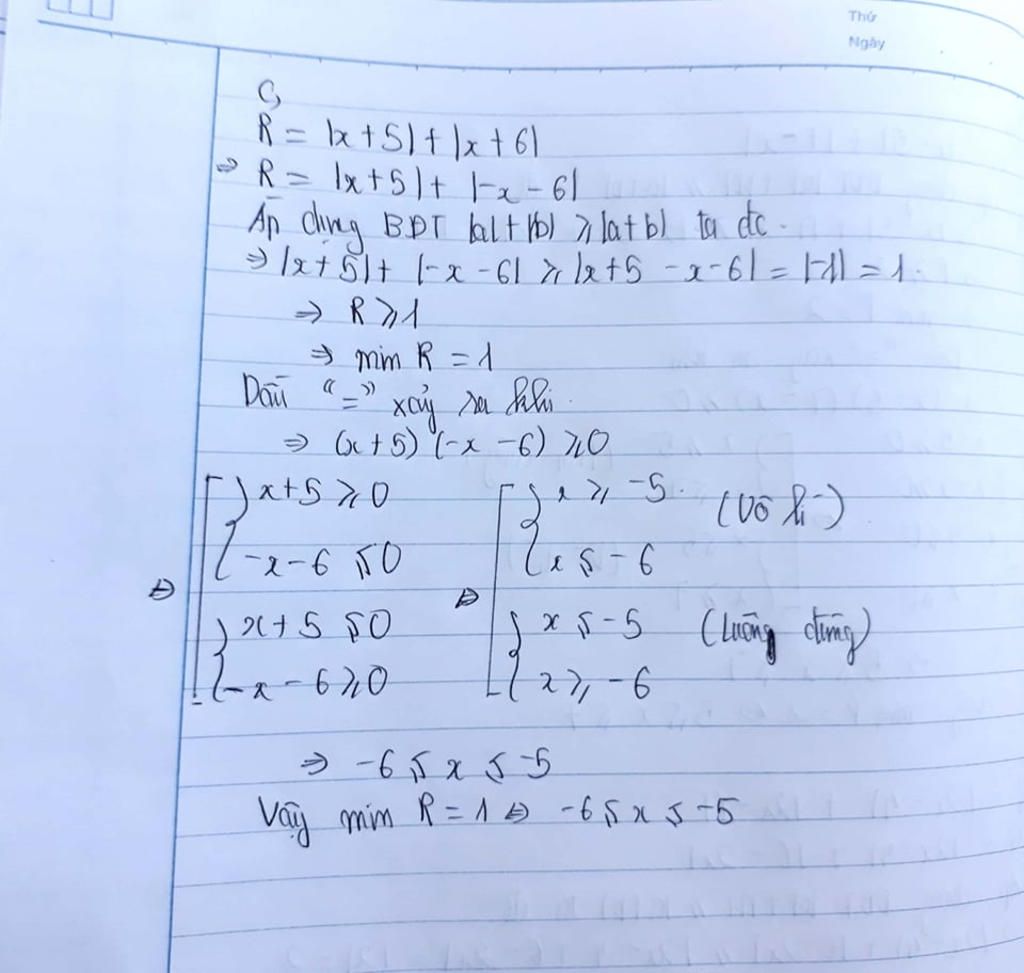 Thứ
Ngày
C,
R = |x + 5| + |x + 6|
⇒ R = |x + 5| + |-x - 6|
Áp dụng BĐT |a| + |b| ⩾ |a + b| ta đc.
⇒ |x + 5| + |-x - 6| ⩾ |x + 5 - x - 6| = |-1| = 1.
⇒ R ⩾ 1
⇒ min R = 1
Dấu "=" xảy ra khi.
⇒ (x + 5) (-x - 6) ⩾ 0
x + 5 ⩾ 0 x ⩾ -5. (Vô lí)
⇔ -x - 6 ⩽ 0 ⇔ x ⩽ - 6
x + 5 ⩽ 0 x ⩽ -5 (Luôn đúng)
-x - 6 ⩾ 0 x ⩾ -6
⇒ -6 ⩽ x ⩽ -5
Vậy min R = 1 ⇔ -6 ⩽ x ⩽ -5